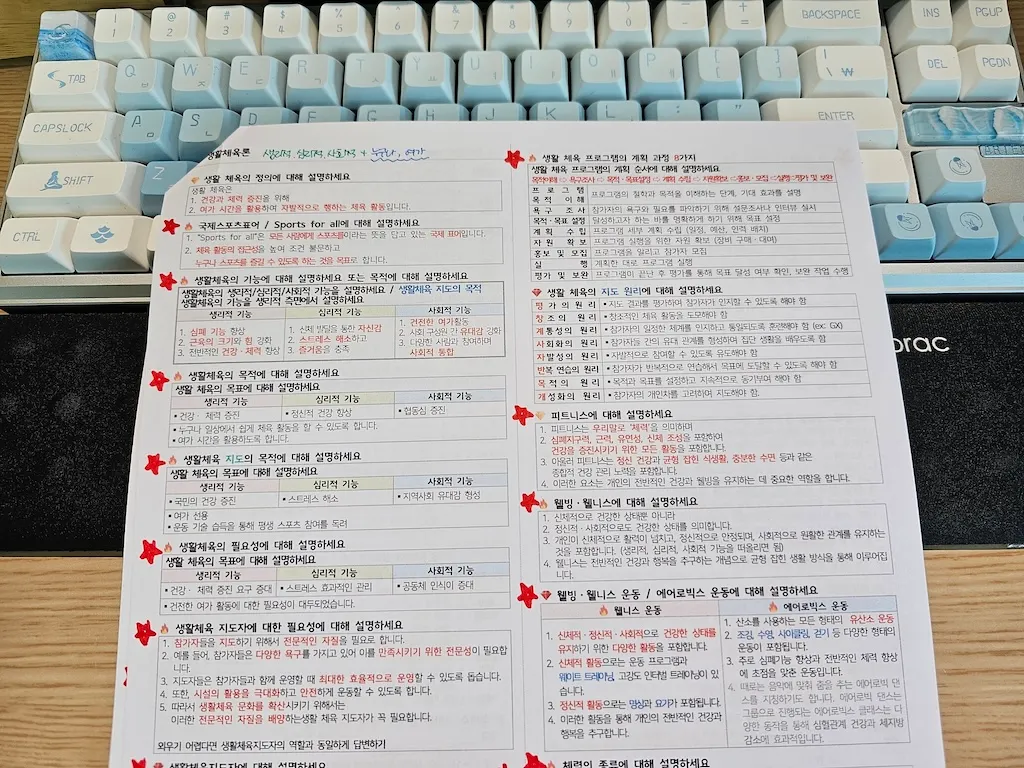 생활체육론 생리적 심리적, 사회적 + 누구나, 여가
생활 체육의 정의에 대해 설명하세요
생활 체육은
1. 건강과 체력 증진을 위해
2. 여가 시간을 활용하며 자발적으로 행하는 체육 활동입니다.
국제스포츠표어 / Sports for all에 대해 설명하세요
1. "Sports for all"은 모든 사람에게 스포츠를이라는 뜻을 담고 있는 국제 표어입니다.
2. 체육 활동의 접근성을 높여 조건 불문하고
누구나 스포츠를 즐길 수 있도록 하는 것을 목표로 합니다.
생활체육의 기능에 대해 설명하세요 또는 목적에 대해 설명하세요
생활체육의 생리적/심리적/사회적 기능을 설명하세요 / 생활체육 지도의 목적
생활체육의 기능을 생리적 측면에서 설명하세요
생리적 기능 심리적 기능 사회적 기능
1. 심폐 기능 향상
2. 근육의 크기와 힘 강화
3. 전반적인 건강·체력 향상
1. 신체 발달을 통한 자신감
2. 스트레스 해소하고
3. 즐거움을 충족
1. 건전한 여가활동
2. 사회 구성원 간 유대감 강화
3. 다양한 사람과 참여하며
사회적 통합
생활체육의 목적에 대해 설명하세요
생활 체육의 목표에 대해 설명하세요
생리적 기능 심리적 기능 사회적 기능
• 건강· 체력 증진 • 정신적 건강 향상 • 협동심 증진
• 누구나 일상에서 쉽게 체육 활동을 할 수 있도록 합니다.
• 여가 시간을 활용하도록 합니다.
생활체육 지도의 목적에 대해 설명하세요
생활 체육의 목표에 대해 설명하세요
생리적 기능 심리적 기능 사회적 기능
• 국민의 건강 증진 • 스트레스 해소 • 지역사회 유대감 형성
• 여가 선용
• 운동 기술 습득을 통해 평생 스포츠 참여를 독려
생활체육의 필요성에 대해 설명하세요
생활 체육의 목표에 대해 설명하세요
생리적 기능 심리적 기능 사회적 기능
• 건강 · 체력 증진 요구 증대 • 스트레스 효과적인 관리 • 공동체 인식이 증대
• 건전한 여가 활동에 대한 필요성이 대두되었습니다.
생활체육 지도자에 대한 필요성에 대해 설명하세요
1. 참가자들을 지도하기 위해서 전문적인 자질을 필요로 합니다.
2. 예를 들어, 참가자들은 다양한 욕구를 가지고 있어 이를 만족시키기 위한 전문성이 필요합
니다.
3. 지도자들은 참가자들과 함께 운영할 때 최대한 효율적으로 운영할 수 있도록 돕습니다.
4. 또한, 시설의 활용을 극대화하고 안전하게 운동할 수 있도록 합니다.
5. 따라서 생활체육 문화를 확산시키기 위해서는
이러한 전문적인 자질을 배양하는생활 체육 지도자가 꼭 필요합니다.
외우기 어렵다면 생활체육지도자의 역할과 동일하게 답변하기
생활체육지도자에 대해 설명하세요
생활 체육 프로그램의 계획 과정 8가지
생활 체육 프로그램의 계획 순서에 대해 설명하세요
목적이해 ⇨ 욕구조사 ⇨ 목적·목표설정 ⇨ 계획 수립 ⇨ 자원확보 ⇨ 홍보·모집 ⇨ 실행 ⇨ 평가 및 보완
프로그램 목적 이해 프로그램의 철학과 목적을 이해하는 단계, 기대 효과를 설명
욕구 조사 참가자의 욕구와 필요를 파악하기 위해 설문조사나 인터뷰 실시
목적·목표 설정 달성하고자 하는 바를 명확하게 하기 위해 목표 설정
계획 수립 프로그램 세부 계획 수립 (일정, 예산, 인력 배치)
자원 확보 프로그램 실행을 위한 자원 확보 (장비 구매·대여)
홍보 및 모집 프로그램을 알리고 참가자 모집
실행 계획한 대로 프로그램 실행
평가 및 보완 프로그램이 끝난 후 평가를 통해 목표 달성 여부 확인, 보완 작업 수행
생활 체육의 지도 원리에 대해 설명하세요
평가의 원리 • 지도 결과를 평가하여 참가자가 인지할 수 있도록해야 함
창조의 원리 • 창조적인 체육 활동을 도모해야 함
계통성의 원리 • 참가자의 일정한 체계를 인지하고 통일되도록 훈련해야 함 (ex: GX)
사회화의 원리 • 참가자들 간의 유대 관계를 형성하며 집단 생활을 배우도록 함
자발성의 원리 • 자발적으로 참여할 수 있도록 유도해야 함
반복 연습의 원리 • 참가자가 반복적으로 연습해서 목표에 도달할 수 있도록 해야 함
목적의 원리 • 목적과 목표를 설정하고 지속적으로 동기부여 해야 함
개성화의 원리 • 참가자의 개인차를 고려하며 지도해야 함.
피트니스에 대해 설명하세요
1. 피트니스는 우리말로 '체력'을 의미하며
2. 심폐지구력, 근력, 유연성, 신체 조성을 포함하여
건강을 증진시키기 위한 모든 활동을 포함합니다.
3. 아울러 피트니스는 정신 건강과 균형 잡힌 식생활, 충분한 수면 등과 같은
종합적 건강 관리 노력을 포함합니다.
4. 이러한 요소는 개인의 전반적인 건강과 웰빙을 유지하는 데 중요한 역할을 합니다.
웰빙·웰니스에 대해 설명하세요
1. 신체적으로 건강한 상태뿐 아니라
2. 정신적·사회적으로도 건강한 상태를 의미합니다.
3. 개인이 신체적으로 활력이 넘치고, 정신적으로 안정되며, 사회적으로 원활한 관계를 유지하는
것을 포함합니다. (생리적, 심리적, 사회적 기능을 떠올리면 됨)
4. 웰니스는 전반적인 건강과 행복을 추구하는 개념으로 균형 잡힌 생활 방식을 통해 이루어집
니다.
웰빙·웰니스 운동 / 에어로빅스 운동에 대해 설명하세요
웰니스 운동 에어로빅스 운동
1. 신체적·정신적·사회적으로 건강한 상태를
유지하기 위한 다양한 활동을 포함합니다.
2. 신체적 활동으로는 운동 프로그램과
웨이트 트레이닝, 고강도 인터벌 트레이닝이 있
습니다.
3. 정신적 활동으로는 명상과 요가가 포함됩니다.
4. 이러한 활동을 통해 개인의 전반적인 건강과
행복을 추구합니다.
1. 산소를 사용하는 모든 형태의 유산소 운동
2. 조깅, 수영, 사이클링, 걷기 등 다양한 형태의
운동이 포함됩니다.
3. 주로 심폐기능 향상과 전반적인 체력 향상
에 초점을 맞춘 운동입니다.
4. 때로는 음악에 맞춰 춤을 추는 에어로빅 댄
스를 지칭하기도 합니다. 에어로빅 댄스는
그룹으로 진행되는 에어로빅스 클래스는 다
양한 동작을 통해 심혈관계 건강과 체지방
감소에 효과적입니다.
체력의 종류에 대해 설명하세요
@ 2 # 3 $ 4 % 5 ^ 6 & 7 * 8 ( 9 ) 0 _ - + = BACKSPACE INS PGUP
TAB Q W E R T Y U I O P [ ] \ ₩ DEL PGDN
CAPSLOCK A S D F G H J K L : " ENTER
SHIFT Z
CTRL
orac